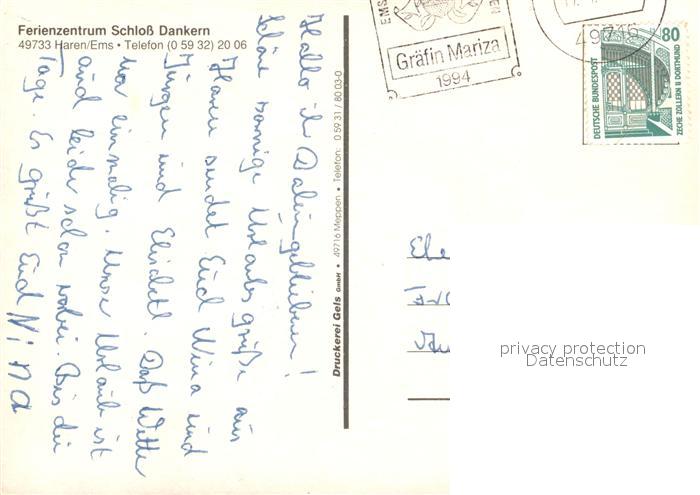 Ferienzentrum Schloß Dankern
49733 Haren/Ems • Telefon (0 59 32) 20 06
Hallo Daheimgebliebenen!
Schöne sonnige Urlaubsgrüße aus
Haren sendet Euch Nina und
Jürgen und Elisabeth. Daß Wetter
war einmalig. Unser Urlaub ist
auch leider schon vorbei. Bis die
Tage. Es grüßt Euch Nina
Druckerei Gels GmbH • 49716 Meppen • Telefon: 0 59 31 / 80 03-0
EMS
Gräfin Mariza
1994
49716
80
DEUTSCHE BUNDESPOST
ZECHE ZOLLERN II DORTMUND
privacy protection
Datenschutz